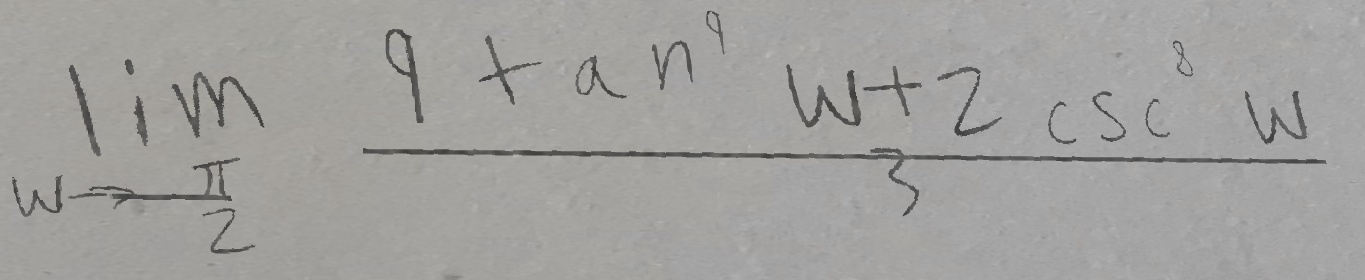 lim w→π/2 (9 tan⁹ w + 2 csc⁸ w)/3